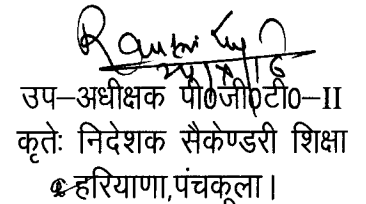 उप–अधीक्षक पी0जी0टी0–II
कृतेः निदेशक सैकेण्डरी शिक्षा
हरियाणा,पंचकूला।